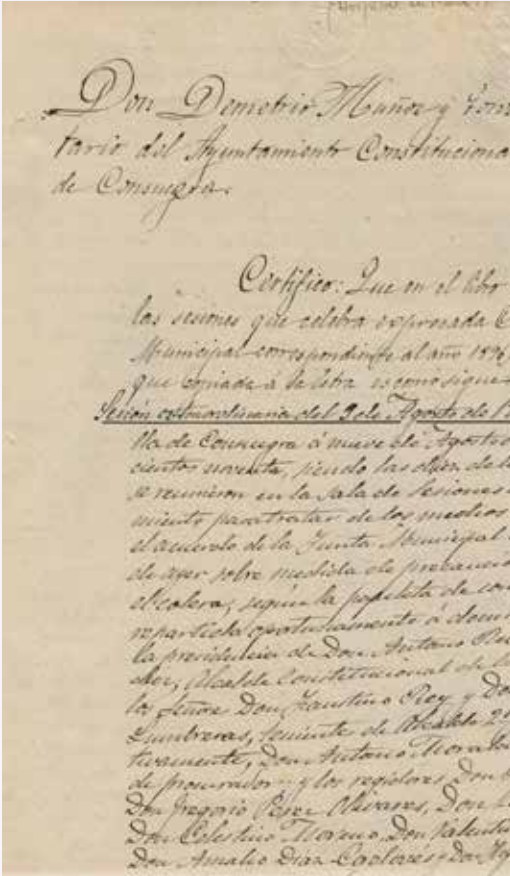 Don Demetrio Muñoz y
tario del Ayuntamiento Constituciona
de Consuegra.
Certifico: Que en el libro
las sesiones que celebra expresada
Municipal correspondiente al año
que copiada a la letra es como sigue
Sesión extraordinaria del 9 de Agosto de
lla de Consuegra á nueve de Agosto
cientos noventa, siendo las diez de la
se reunieron en la Sala de Sesiones
miento para tratar de los medios
el acuerdo de la Junta Municipal
de ayer sobre medida de precaució
el colera, según la papeleta de con
repartida oportunamente á domi
la presidencia de Don Antonio
Alcalde Constitucional de
los Señores Don Faustino Rey y Do
Lumbreras, teniente de Alcalde
tivamente, Don Antonio Mora
de procurador y los regidores Don
Don Gregorio Perez Olivares, Don
Don Celestino Moreno, Don Valentin
Don Amalio Diaz